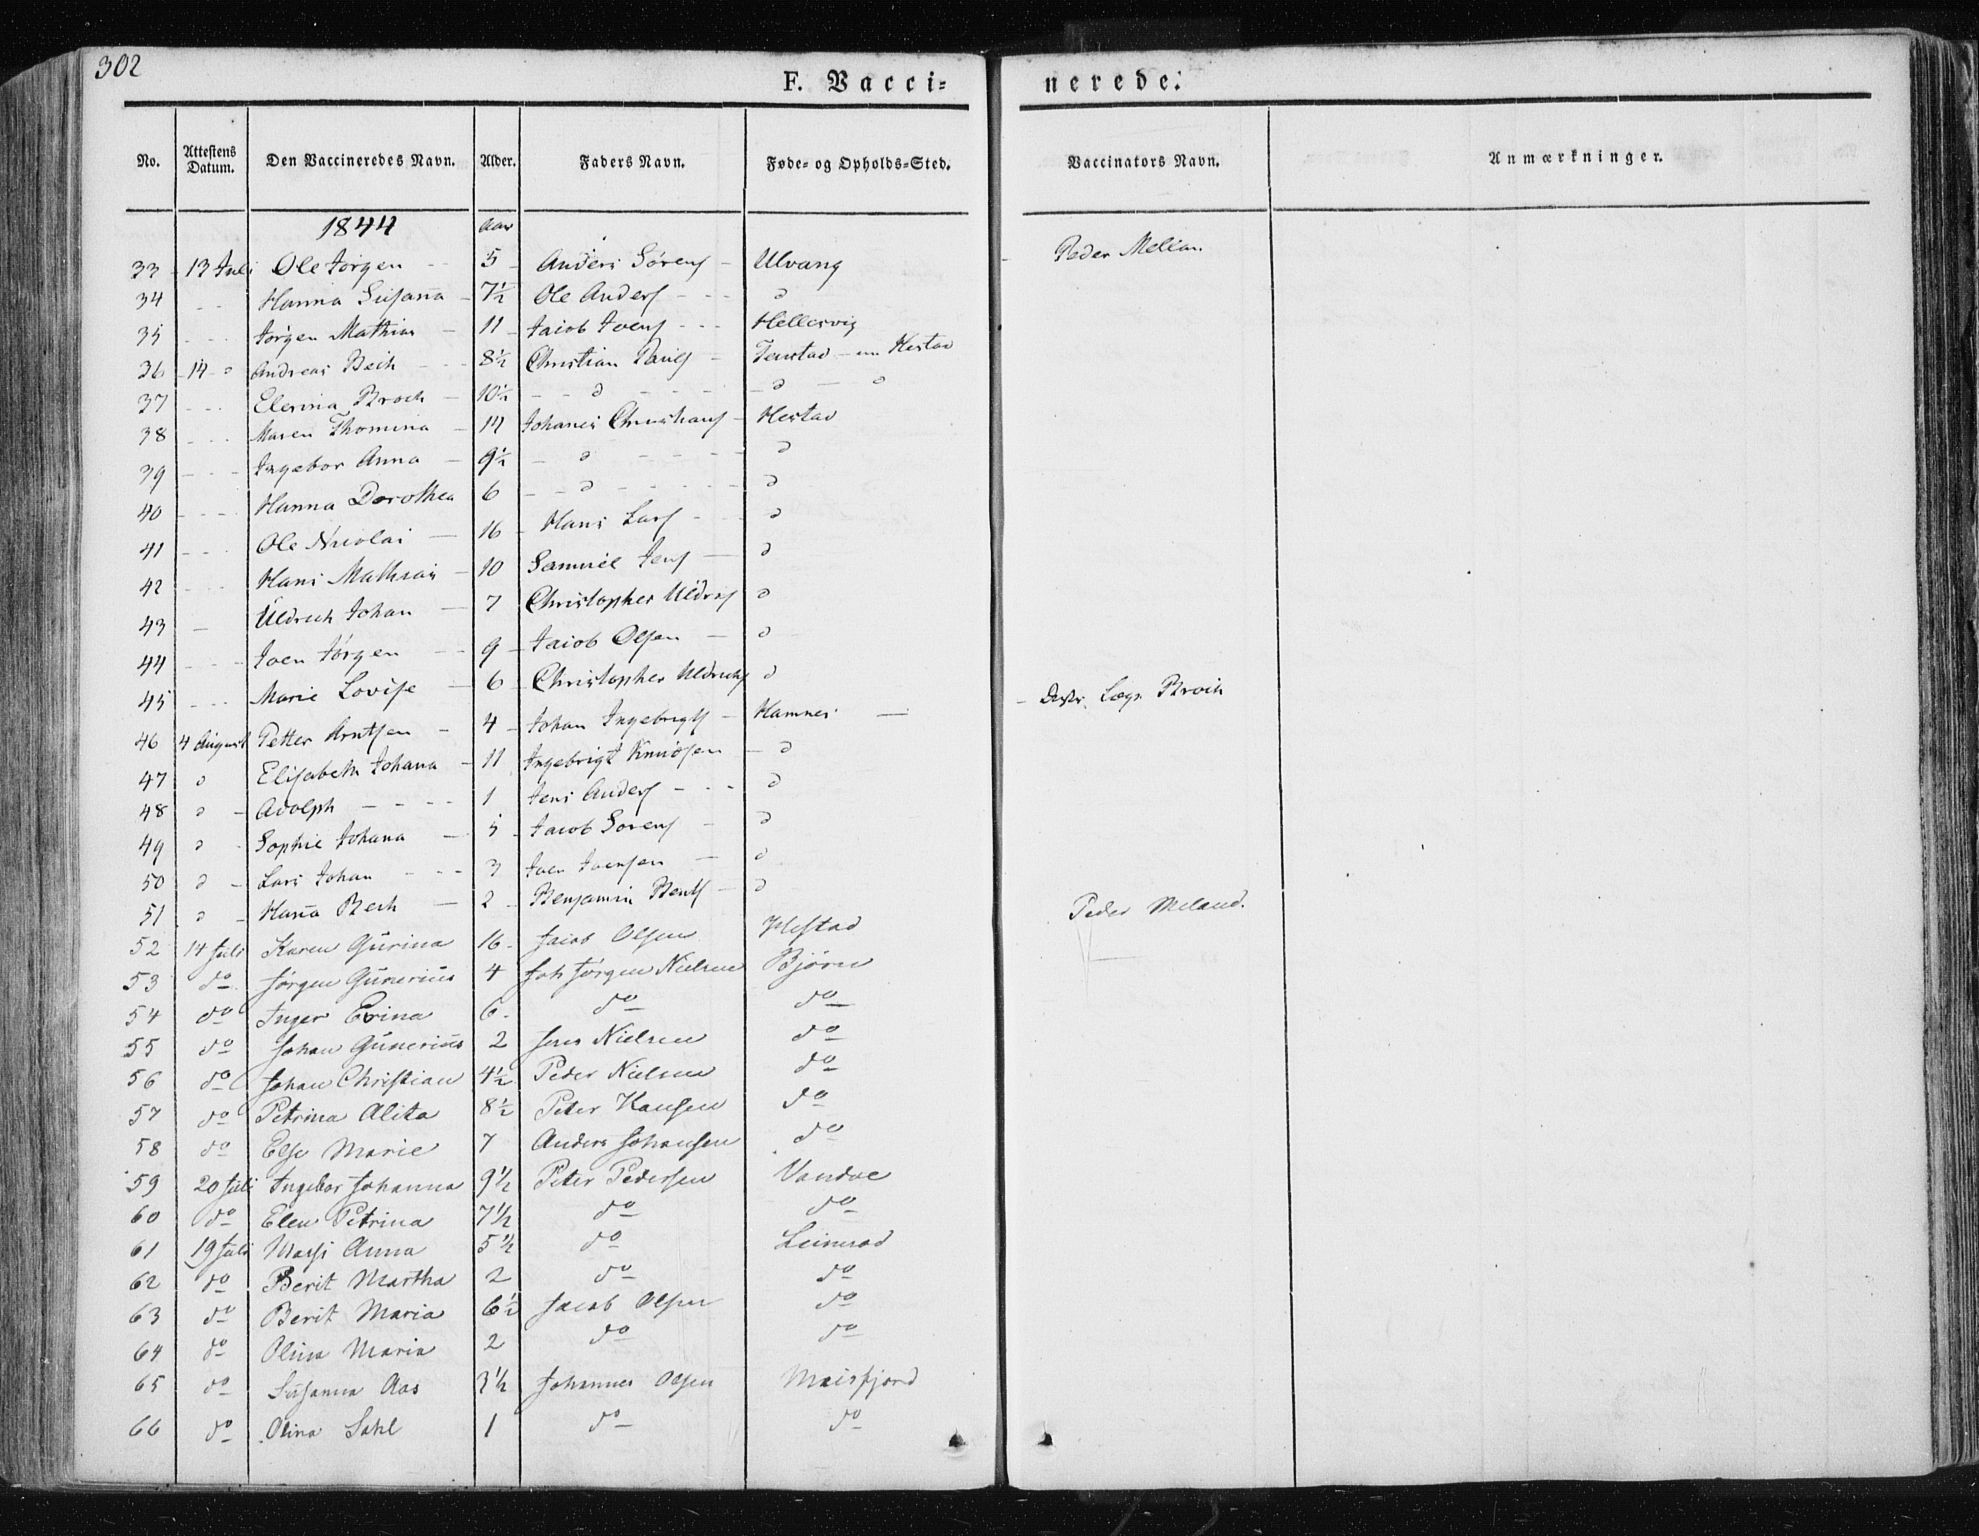 302
F. Vacci=nerede.
No. Attestens Datum. Den Vaccineredes Navn. Alder. Faders Navn. Føde- og Opholds-Sted. Vaccinators Navn. Anmærkninger.
1844 Aar
33 13 Juli Ole Jørgen 5 Anders Sørens Ulvang Peder Melan
34 Hanna Susana 7½ Ole Anders d
35 Jørgen Mathias 11 Jacob Joens Hellesvig
36 14 d Andreas Bech 8½ Christian Pauls Hestad
37 Elerina Broch 10½ d d d
38 Maren Thomina 14 Johanes Christians Hestad
39 Ingebor Anna 9½ d d
40 Hanna Dorothea 6 d d
41 Ole Nicolai 16 Hans Lars d
42 Hans Mathias 10 Samuel Jens d
43 Uldrich Johan 7 Christopher Uldrichs d
44 Joen Jørgen 9 Jacob Olsen d
45 Marie Lovise 6 Christopher Uldrichs d
46 4 August Petter Arntsen 4 Johan Ingebrigts Hamnes Distr. Læge Broch
47 d Elisabeth Johana 11 Ingebrigt Knudsen d
48 d Adolph 1 Jens Anders d
49 d Sophie Johana 5 Jacob Sørens d
50 d Lars Johan 3 Joen Joensen d
51 d Hana Bech 2 Benjamin Bents d
52 14 Juli Karen Gurina 16 Jacob Olsen Hestad Peder Meland.
53 do Jørgen Gunerius 4 Joh Jørgen Nielsen Bjørn
54 do Inger Erina 6 do do
55 do Johan Gunerius 2 Jens Nielsen do
56 do Johan Christian 4½ Peder Nielsen do
57 do Petrina Alita 8½ Peter Hansen do
58 do Else Marie 7 Anders Johansen do
59 20 Juli Ingebor Johanna 9½ Peter Pedersen Vandve
60 do Elen Petrina 7½ do do
61 19 Juli Massi Anna 5½ do Leinesod
62 do Berit Martha 2 do do
63 do Berit Maria 6½ Jacob Olsen do
64 do Olina Maria 2 do do
65 do Susanna Aas 3½ Johannes Olsen Meisfjord
66 do Olina Sahl 1 do do